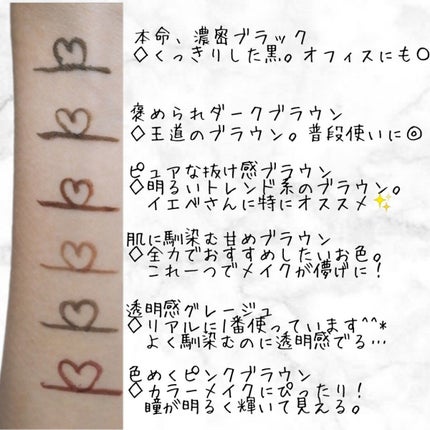 本命、濃密ブラック
◇くっきりした黒。オフィスにも○
褒められダークブラウン
◇王道のブラウン。普段使いに◎
ピュアな抜け感ブラウン
◇明るいトレンド系のブラウン。
イエベさんに特にオススメ✨
肌に馴染む甘めブラウン
◇全力でおすすめしたいお色。
これ一つでメイクが儚げに！
透明感グレージュ
◇リアルに1番使っています^^*
よく馴染むのに透明感でる…
色めくピンクブラウン
◇カラーメイクにぴったり！
瞳が明るく輝いて見える。